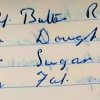 Butter R
Dough
Sugar
Fat.